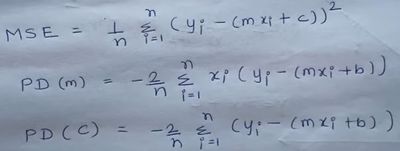 MSE = 1/n Σ_{i=1}^{n} (yi - (mxi + c))²
PD(m) = -2/n Σ_{i=1}^{n} xi (yi - (mxi + b))
PD(C) = -2/n Σ_{i=1}^{n} (yi - (mxi + b))